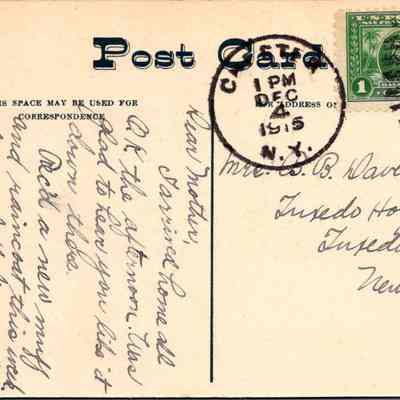 Post Card
IS SPACE MAY BE USED FOR
CORRESPONDENCE
OR ADDRESS O
1 PM
DEC
4
1915
N.Y.
1
Dear Mother,
I arrived home all
O.K. this afternoon. Was
glad to hear you like it
down there.
Rec'd a new muff
and raincoat this week
Mrs. B. Dave
Tuxedo Ho
Tuxedo
New